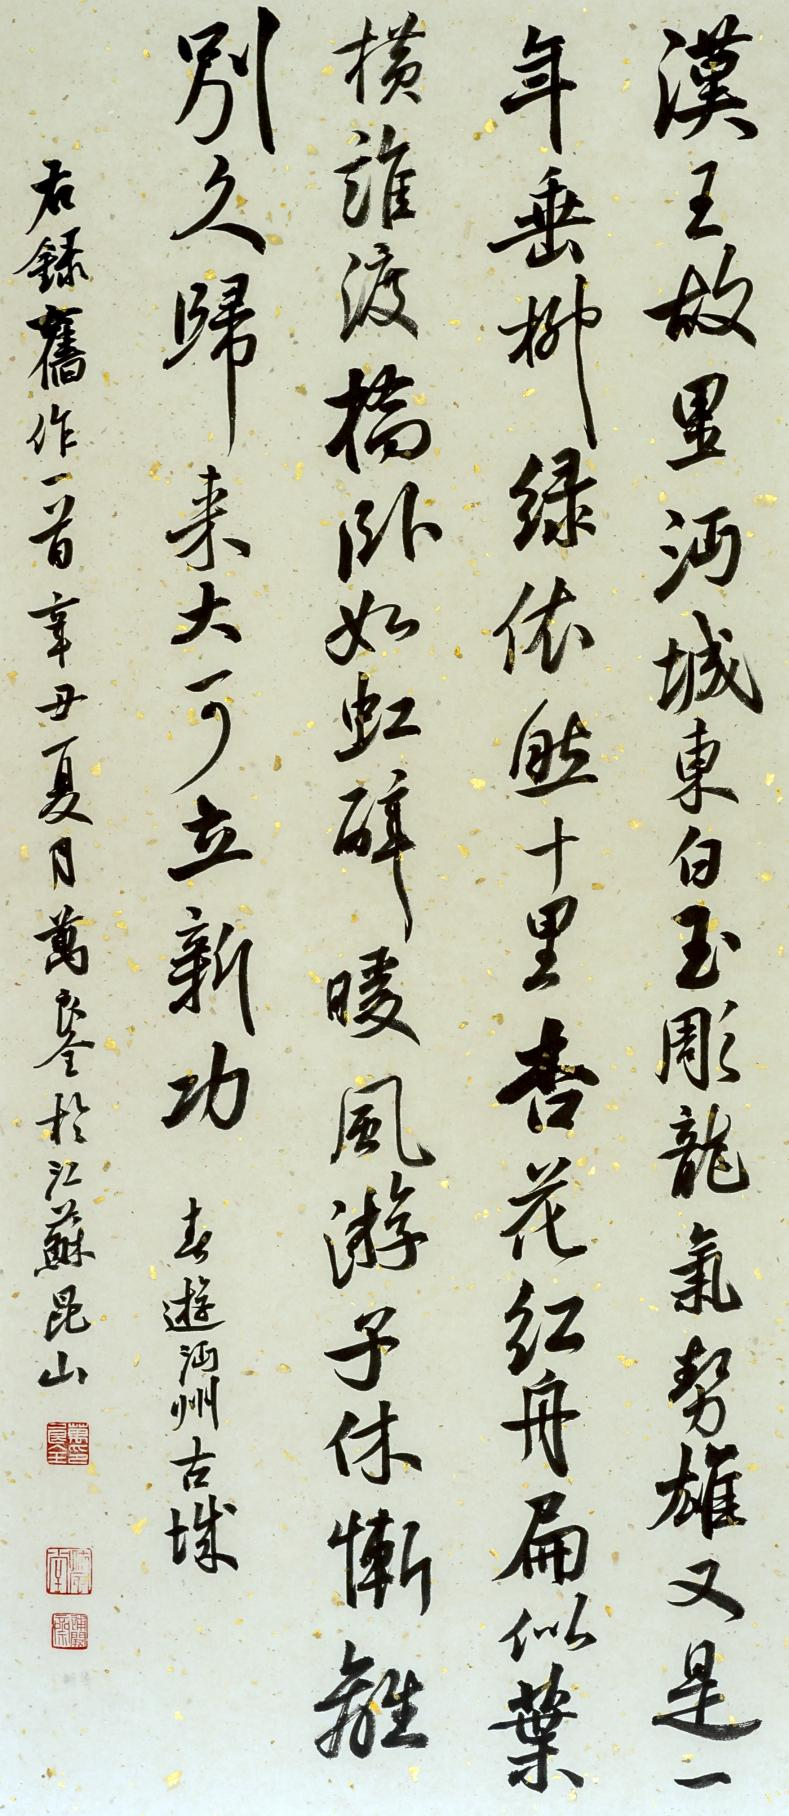 漢王故里沔城東白玉彫龍氣勢雄又是一
年垂柳緑依然十里杏花紅舟扁似葉
橫誰渡橋卧如虹醉暖風游子休慚離
別久歸来大可立新功
春遊沔州古城
右録舊作一首辛丑夏月萬良銓於江蘇昆山